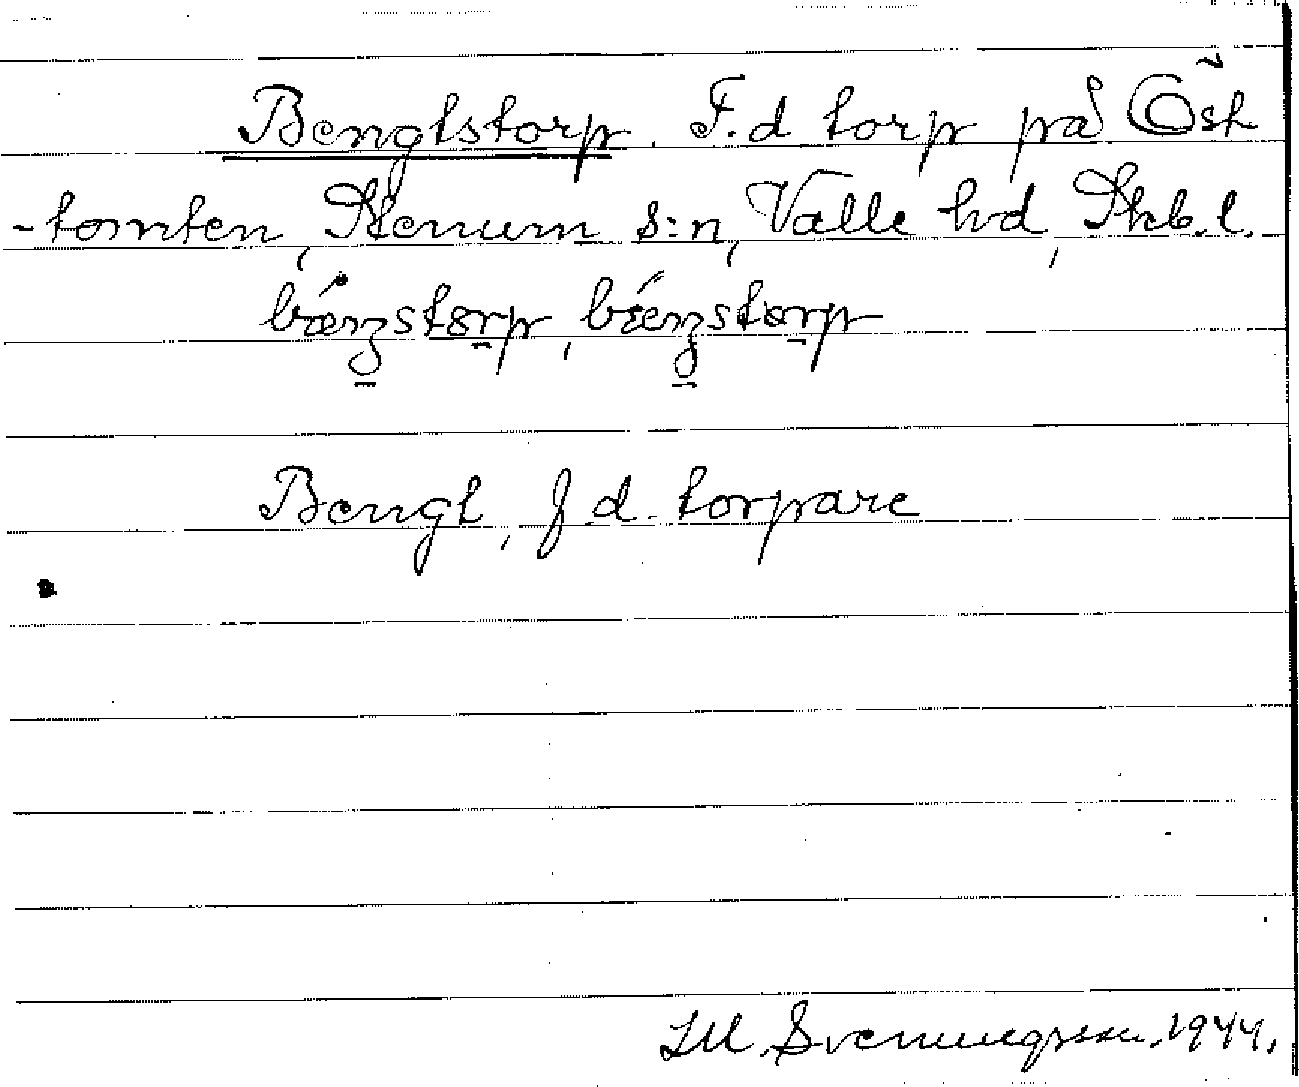 Bengtstorp. F.d torp på Öst
-tomten, Stenum s:n, Valle hd, Skb. l.
bæŋstɔrp, bæŋstɔrp
Bengt, f d. torpare
Svenningsson. 1944.